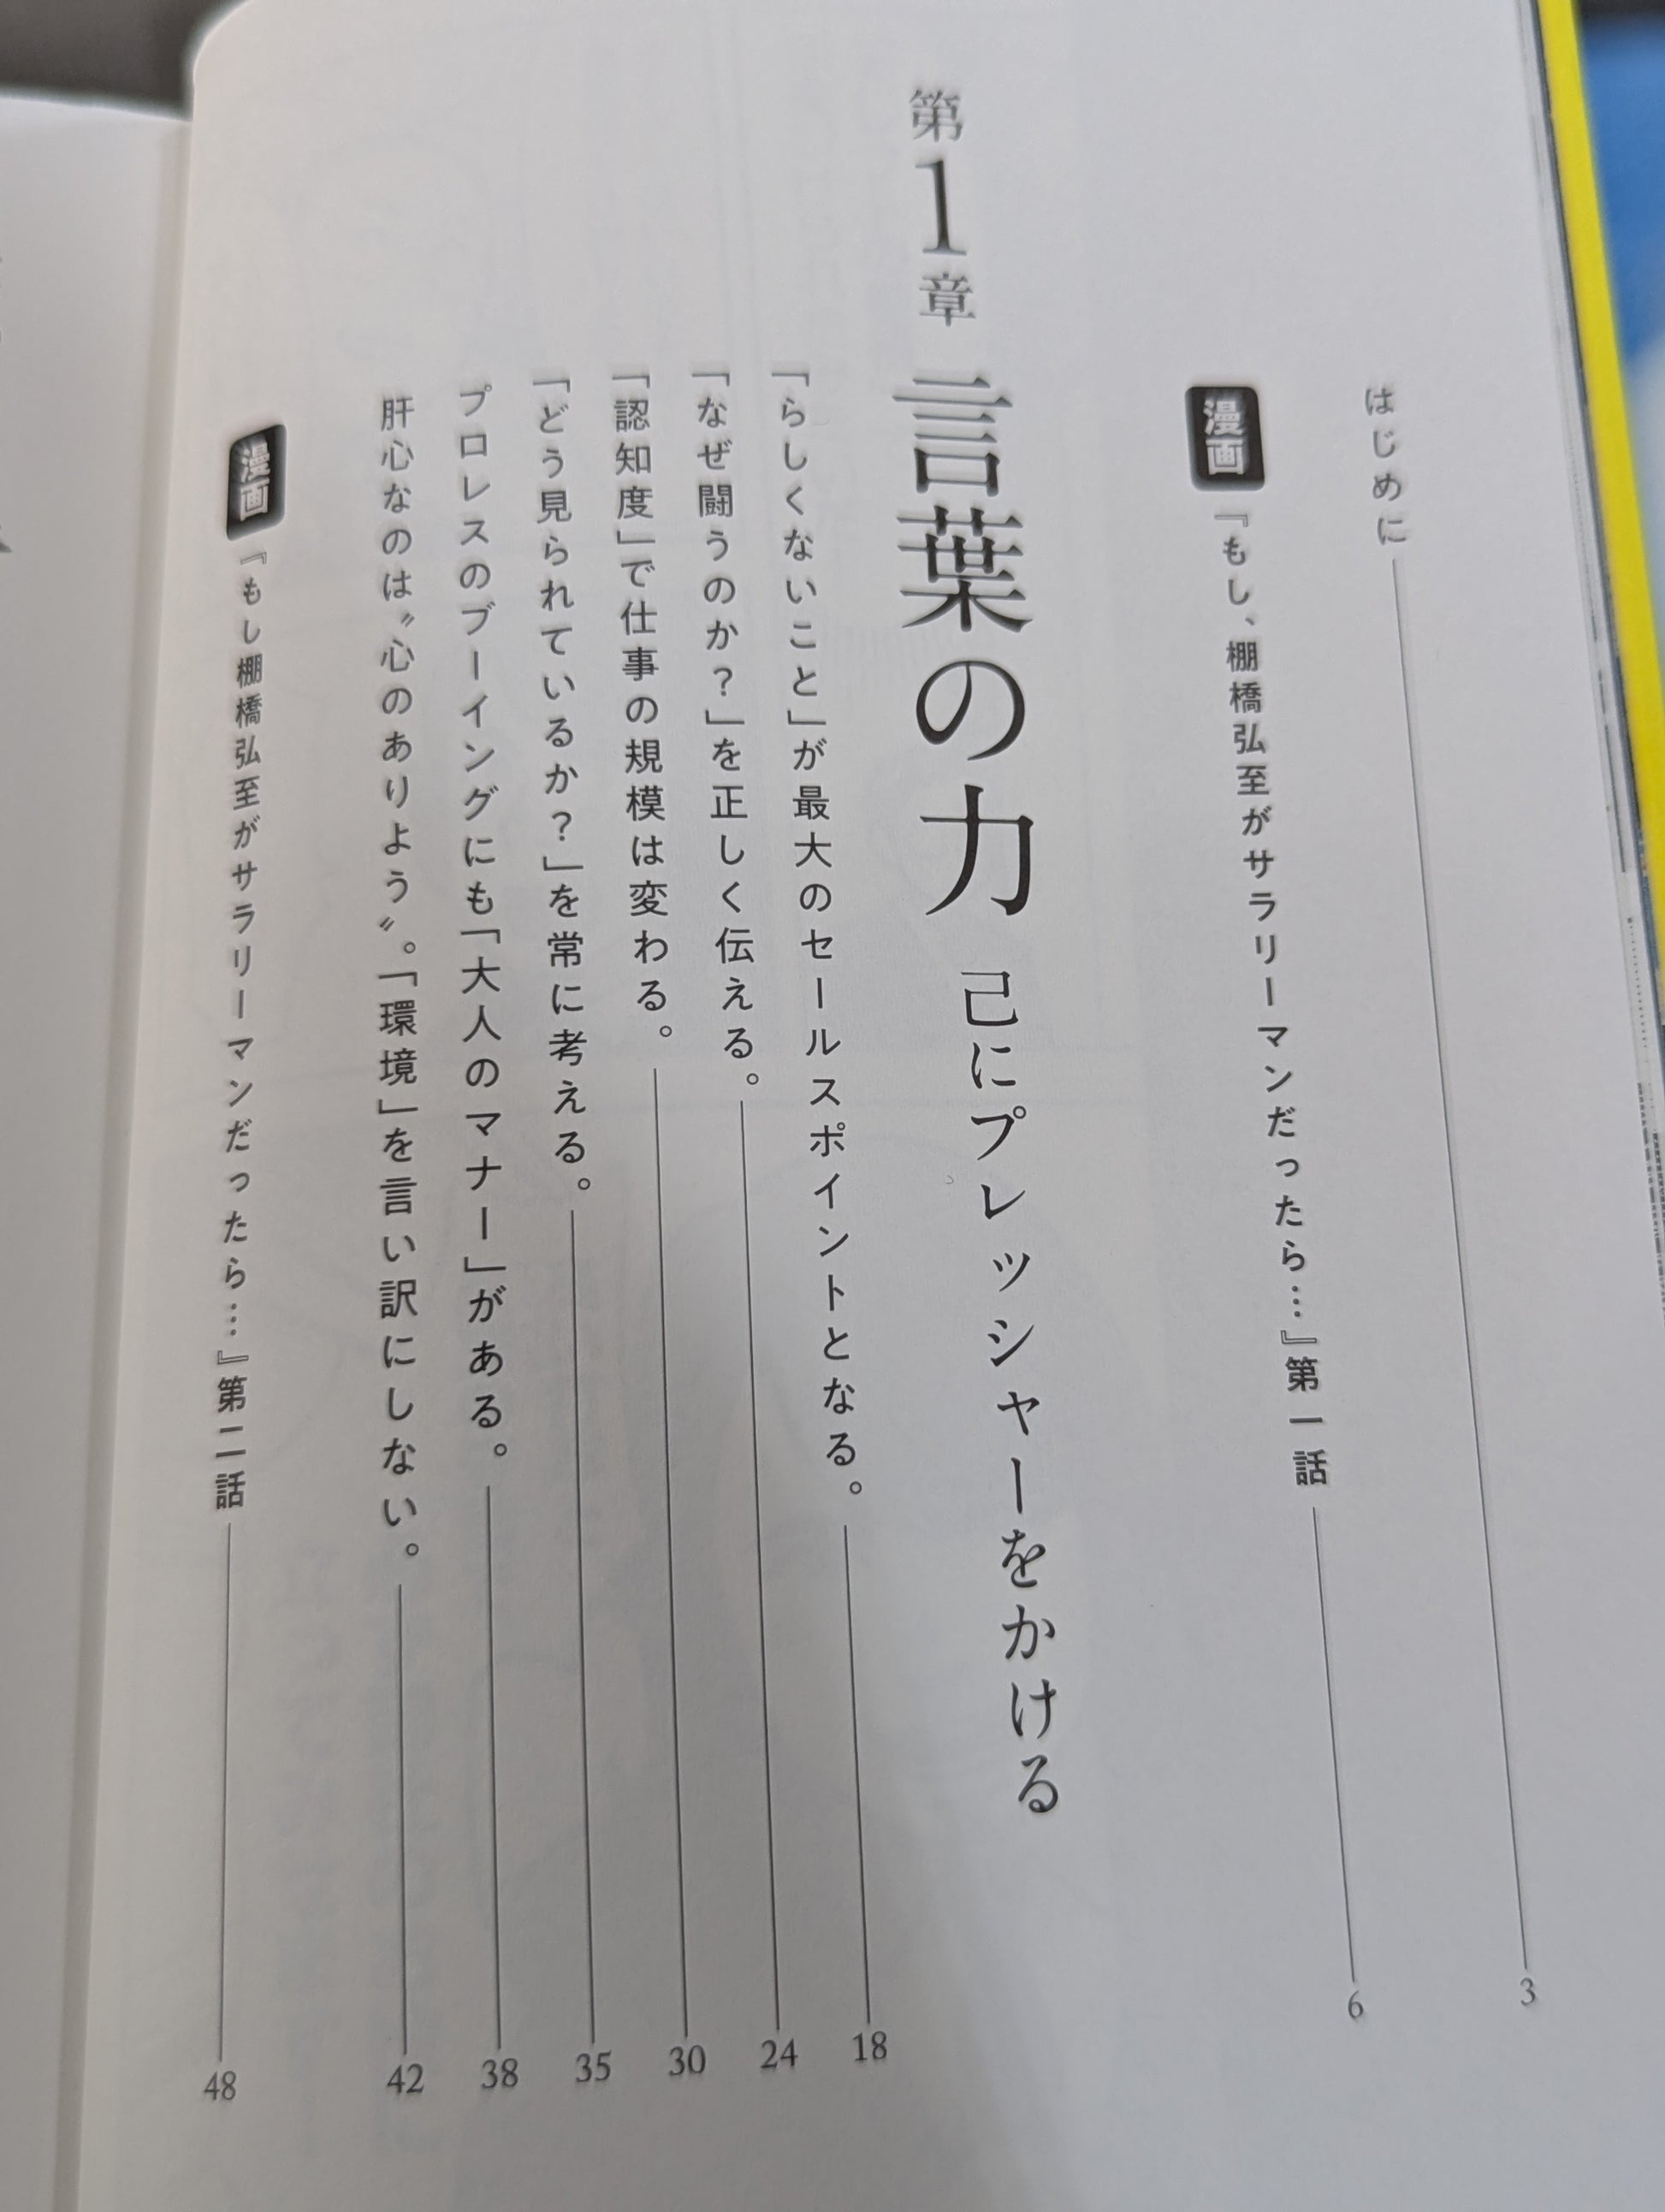 はじめに 3
漫画 『もし、棚橋弘至がサラリーマンだったら…』第一話 6
第1章 言葉の力 己にプレッシャーをかける
「らしくないこと」が最大のセールスポイントとなる。 18
「なぜ闘うのか？」を正しく伝える。 24
「認知度」で仕事の規模は変わる。 30
「どう見られているか？」を常に考える。 35
プロレスのブーイングにも「大人のマナー」がある。 38
肝心なのは〝心のありよう〟。「環境」を言い訳にしない。 42
漫画 『もし棚橋弘至がサラリーマンだったら…』第二話 48